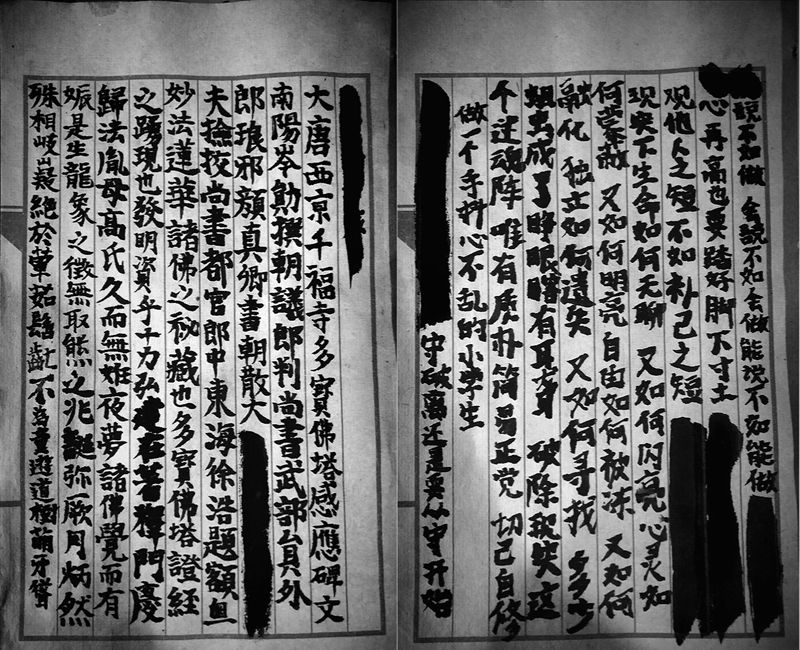 说不如做 会说不如会做 能说不如能做
心再高也要踏好脚下寸土
观他人之短不如朴己之短
现实下生命如何无聊 又如何闪亮 心灵如
何蒙蔽 又如何明亮 自由如何被冻 又如何
融化 独立如何遗失 又如何寻找 多少
成了睁眼瞎有耳 破除现实这
个迷魂阵 唯有质朴简易正觉 切己自修
做一个手抖心不乱的小学生
守破离还是要从守开始
大唐西京千福寺多寳佛塔感應碑文
南陽岑勛撰朝議郎判尚書武部員外
郎琅邪顏真卿書朝散大
夫撿挍尚書都官郎中東海徐浩題額
妙法蓮華諸佛之秘藏也多寳佛塔證經
之踴現也發明資乎十力弘建在禪門慶
歸法胤母高氏久而無姙夜夢諸佛覺而有
娠是生龍象之徵無取熊之兆誕弥厥月炳然
殊相岐嶷絕於葷茹髫齓不為童遊道樹萌牙聳